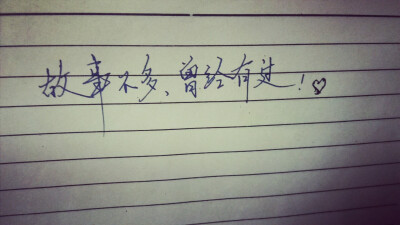 故事不多、曾经有过！♡